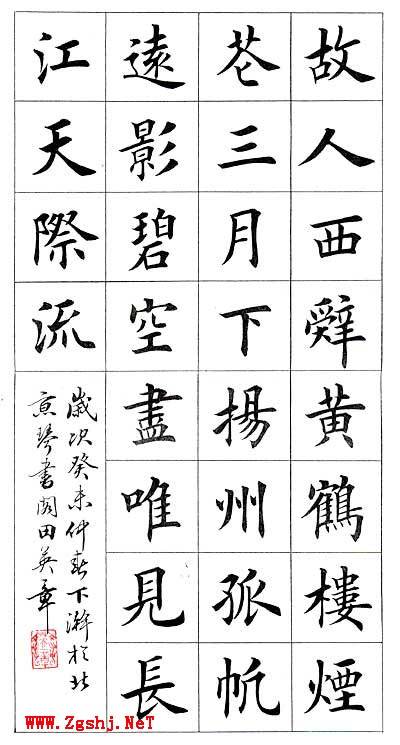 故人西辭黃鶴樓煙
花三月下揚州孤帆
遠影碧空盡唯見長
江天際流
歲次癸未仲春下澣於北
京琴書閣田英章
www.Zgshj.NeT